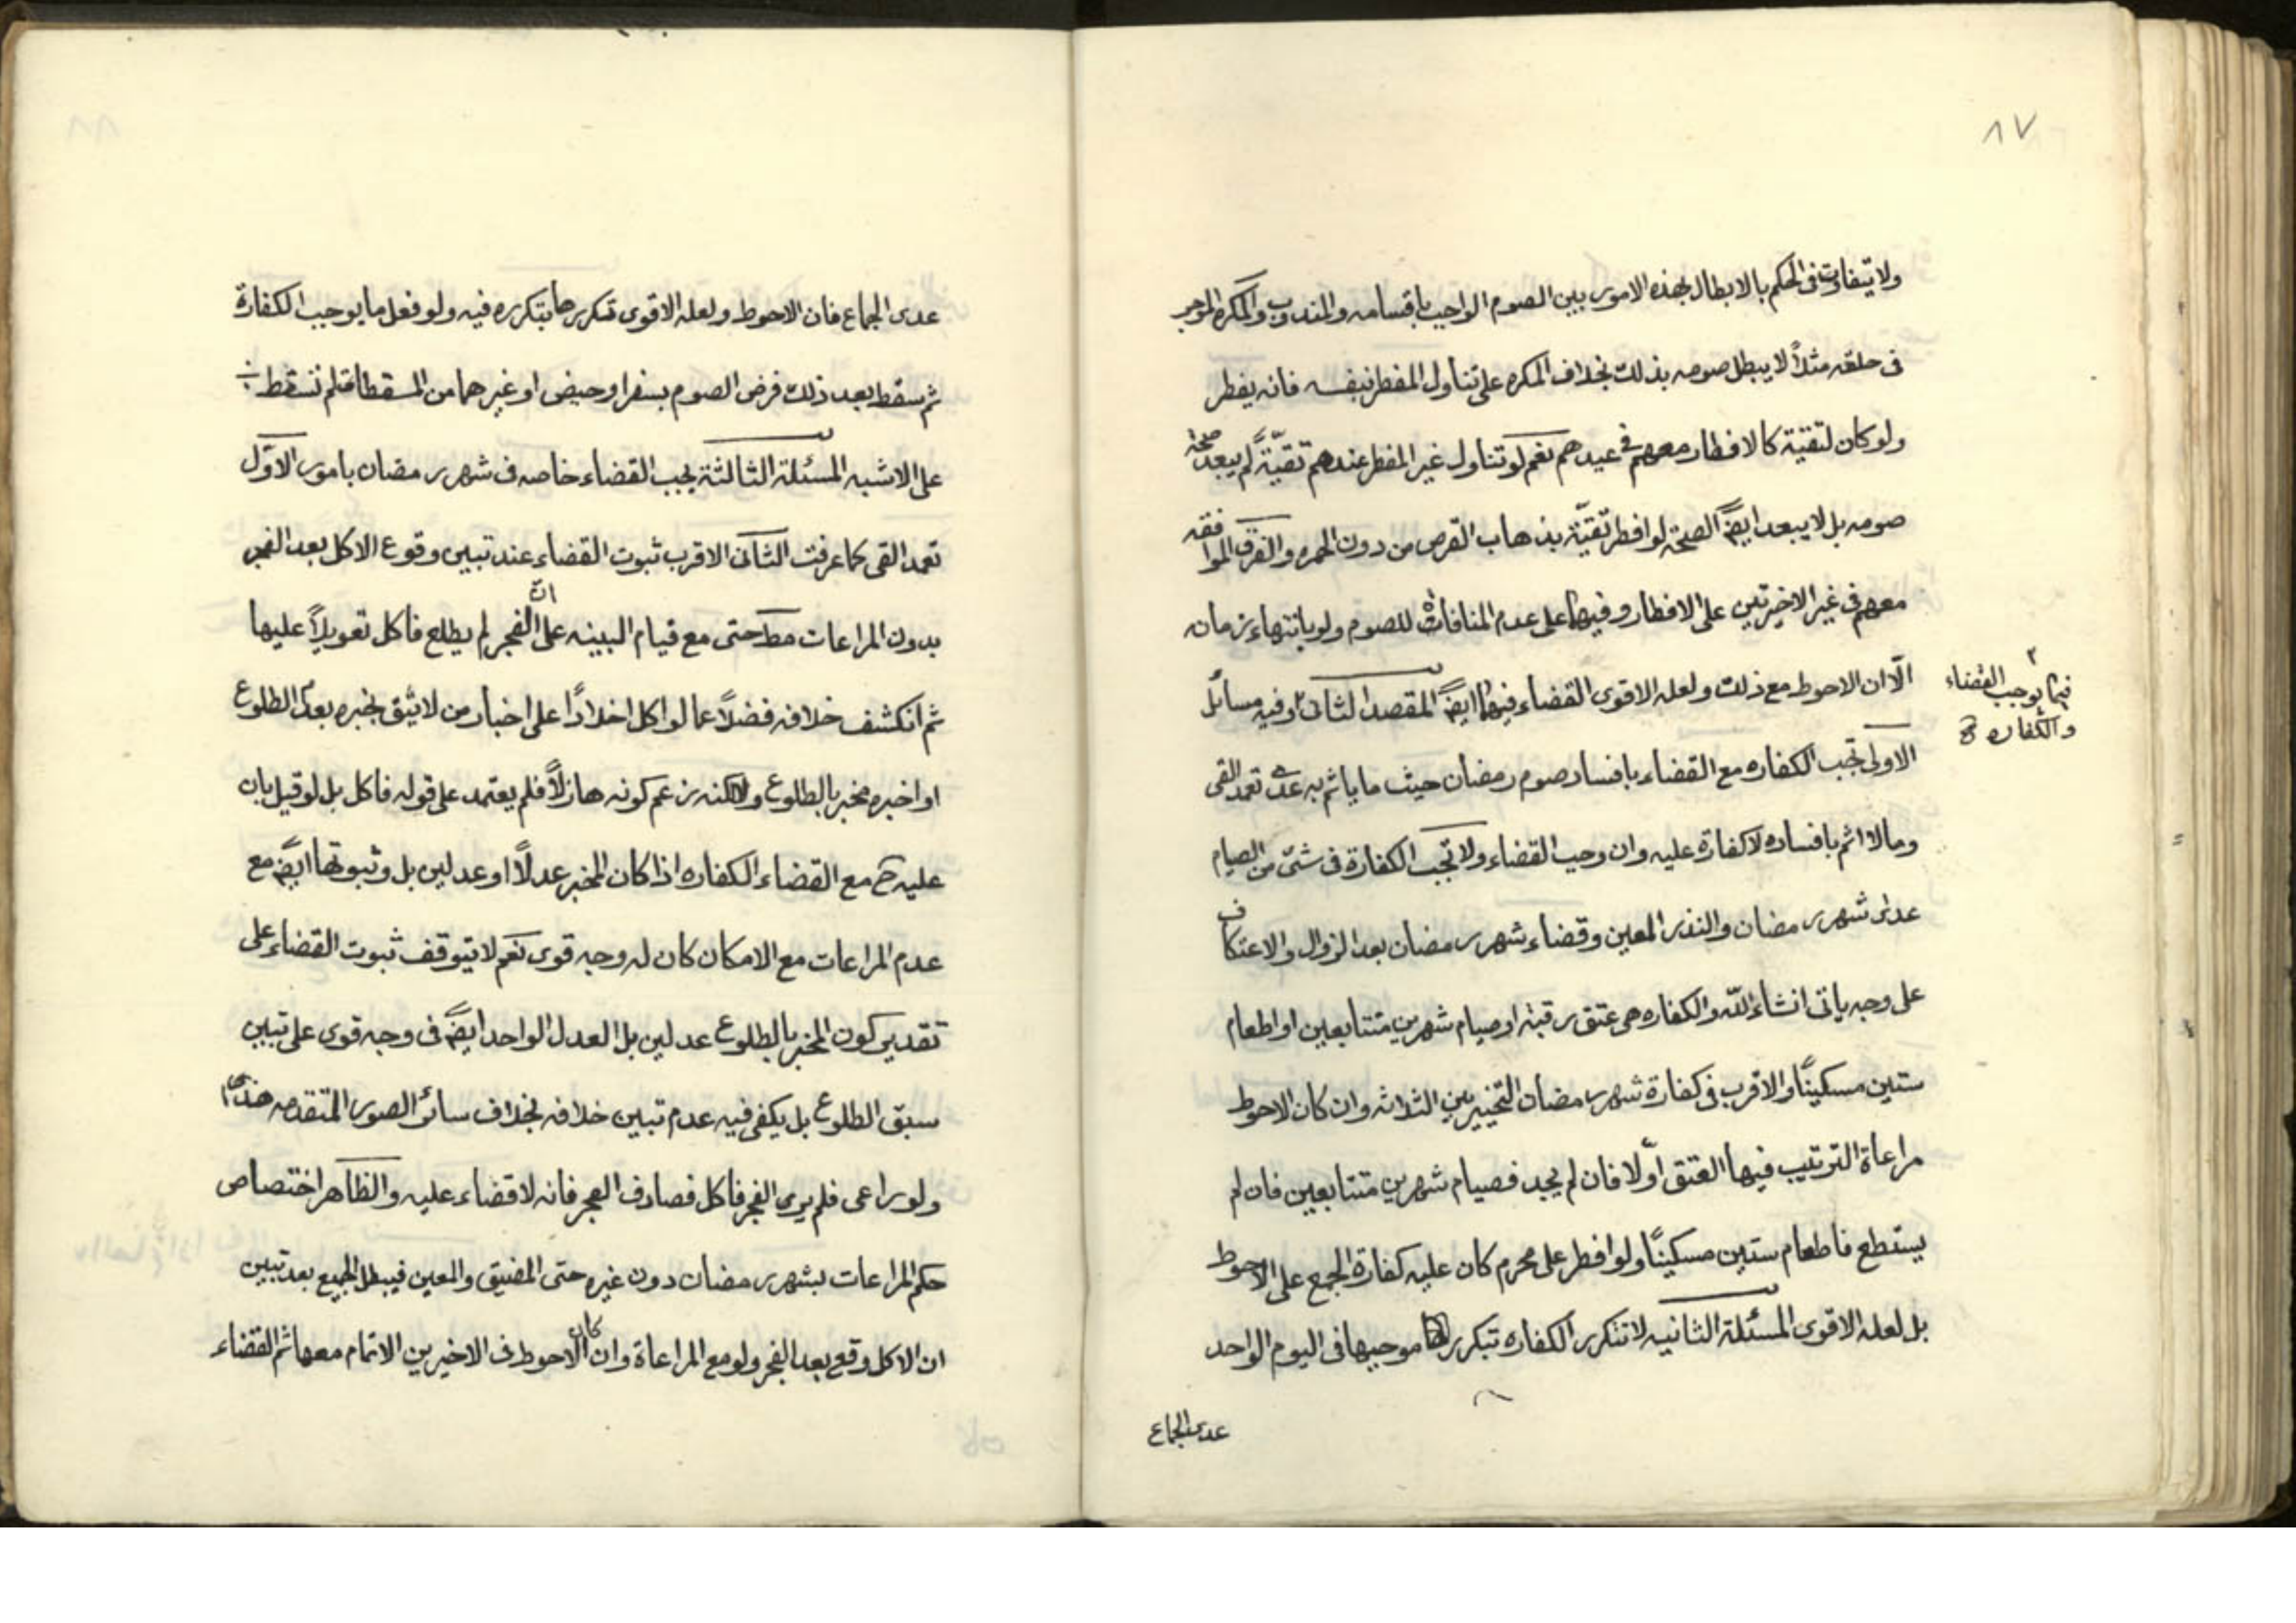 ٨٧
ولا يتفاوت فى الحكم بالابطال بهذه الامور بين الصوم الواجب باقسامه والمندوب والمكره الموجر
فى حلقه مثلاً لا يبطل صومه بذلك بخلاف المكره على تناول المفطر بنفسه فانه يفطر
ولو كان لتقية كالافطار معهم فى عيدهم نعم لو تناول غير المفطر عندهم تقيّةً لم يبعد صحة
صومه بل لا يبعد ايضً الصحة لو افطر تقيّة بذهاب القرص من دون الحمره والفرق الموافقه
معهم فى غير الاخيرتين على الافطار وفيهما على عدم المنافاة للصوم ولو بانتهاء زمانه
الّا ان الاحوط مع ذلك ولعله الاقوى القضاء فيهما ايضً المقصد الثانى ٢ وفيه مسائل
٢ فيما يوجب القضاء
والكفاره
الاولى تجب الكفاره مع القضاء بافساد صوم رمضان حيث ما ياثم به عدى تعمد القى
وما لا اثم بافساده لا كفارة عليه وان وجب القضاء ولا تجب الكفارة فى شئ من الصيام
عدى شهر رمضان والنذر المعين وقضاء شهر رمضان بعد الزوال والاعتكاف
على وجه ياتى انشاء الله والكفاره هى عتق رقبة او صيام شهرين متتابعين او اطعام
ستين مسكينًا والاقرب فى كفارة شهر رمضان التخيير بين الثلاثه وان كان الاحوط
مراعاة الترتيب فيها العتق اولا فان لم يجد فصيام شهرين متتابعين فان لم
يستطع فاطعام ستين مسكينًا ولو افطر على محرم كان عليه كفارة الجمع على الاحوط
بل لعله الاقوى المسئلة الثانيه لا تتكرر الكفاره بتكرر موجبها فى اليوم الواحد
عدى الجماع
عدى الجماع فان الاحوط ولعله الاقوى تكررها بتكرره فيه ولو فعل ما يوجب الكفارة
ثم سقط بعد ذلك فرض الصوم بسفر او حيض او غيرهما من المسقطات لم تسقط
على الاشبه المسئلة الثالثة يجب القضاء خاصه فى شهر رمضان بامور الاوّل
تعمد القى كما عرفت الثانى الاقرب ثبوت القضاء عند تبين وقوع الاكل بعد الفجر
بدون المراعات مط حتى مع قيام البينه على انّ الفجر لم يطلع فاكل تعويلاً عليها
ثم انكشف خلافه فضلاً عما لو اكل اخلادًا على اخبار من لا يثق بخبره بعدم الطلوع
او اخبره مخبر بالطلوع ولكنه زعم كونه هازلاً فلم يعتمد على قوله فاكل بل لو قيل بان
عليه ح مع القضاء الكفاره اذا كان المخبر عدلاً او عدلين بل وثبوتها ايضً مع
عدم المراعات مع الامكان كان له وجه قوى نعم لا يتوقف ثبوت القضاء على
تقدير كون المخبر بالطلوع عدلين بل العدل الواحد ايضً فى وجه قوى على تبين
سبق الطلوع بل يكفى فيه عدم تبين خلافه بخلاف سائر الصور المتقدمه هذا
ولو راعى فلم يرى الفجر فاكل فصادف الفجر فانه لا قضاء عليه والظاهر اختصاص
حكم المراعات بشهر رمضان دون غيره حتى المضيق والمعين فيبطل الجميع بعد تبين
ان الاكل وقع بعد الفجر ولو مع المراعاة وان كان الاحوط فى الاخيرين الاتمام معها ثم القضاء